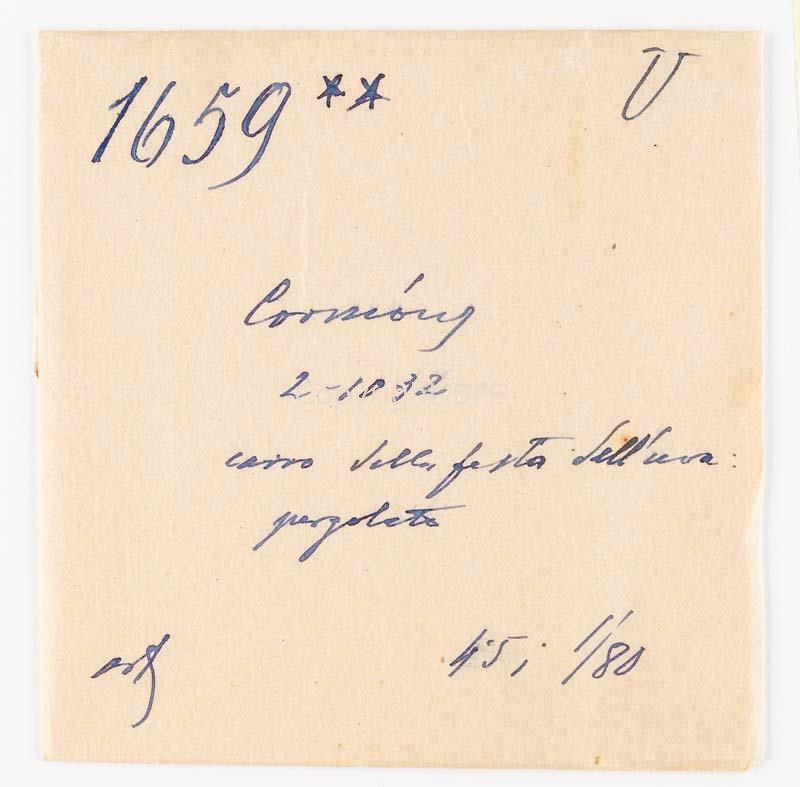 1659 ** U
Cormóns
2-10 32
carro della festa dell'uva:
pergolato
ort
4.5; 1/80